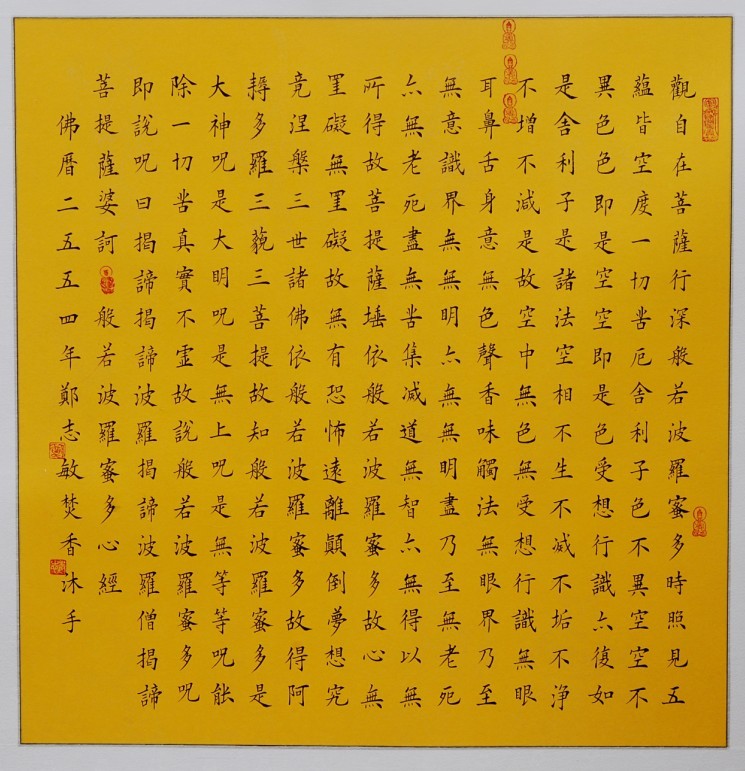 觀自在菩薩行深般若波羅蜜多時照見五
蘊皆空度一切苦厄舍利子色不異空空不
異色色即是空空即是色受想行識亦復如
是舍利子是諸法空相不生不滅不垢不淨
不增不減是故空中無色無受想行識無眼
耳鼻舌身意無色聲香味觸法無眼界乃至
無意識界無無明亦無無明盡乃至無老死
亦無老死盡無苦集滅道無智亦無得以無
所得故菩提薩埵依般若波羅蜜多故心無
罣礙無罣礙故無有恐怖遠離顛倒夢想究
竟涅槃三世諸佛依般若波羅蜜多故得阿
耨多羅三藐三菩提故知般若波羅蜜多是
大神呪是大明呪是無上呪是無等等呪能
除一切苦真實不虛故說般若波羅蜜多呪
即說呪曰揭諦揭諦波羅揭諦波羅僧揭諦
菩提薩婆訶 般若波羅蜜多心經
佛曆二五五四年鄭志敏焚香沐手